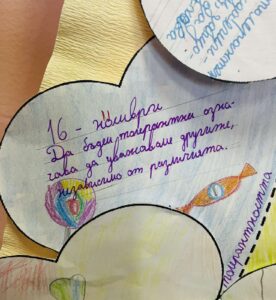 16 - ноември
Да бъдеш толерантен озна-
чава да уважаваш другите,
независимо от различията.
толерантността